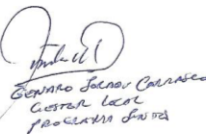 GENARO JORDAN CARRASCO
GESTOR LOCAL
PROGRAMA JUNTOS